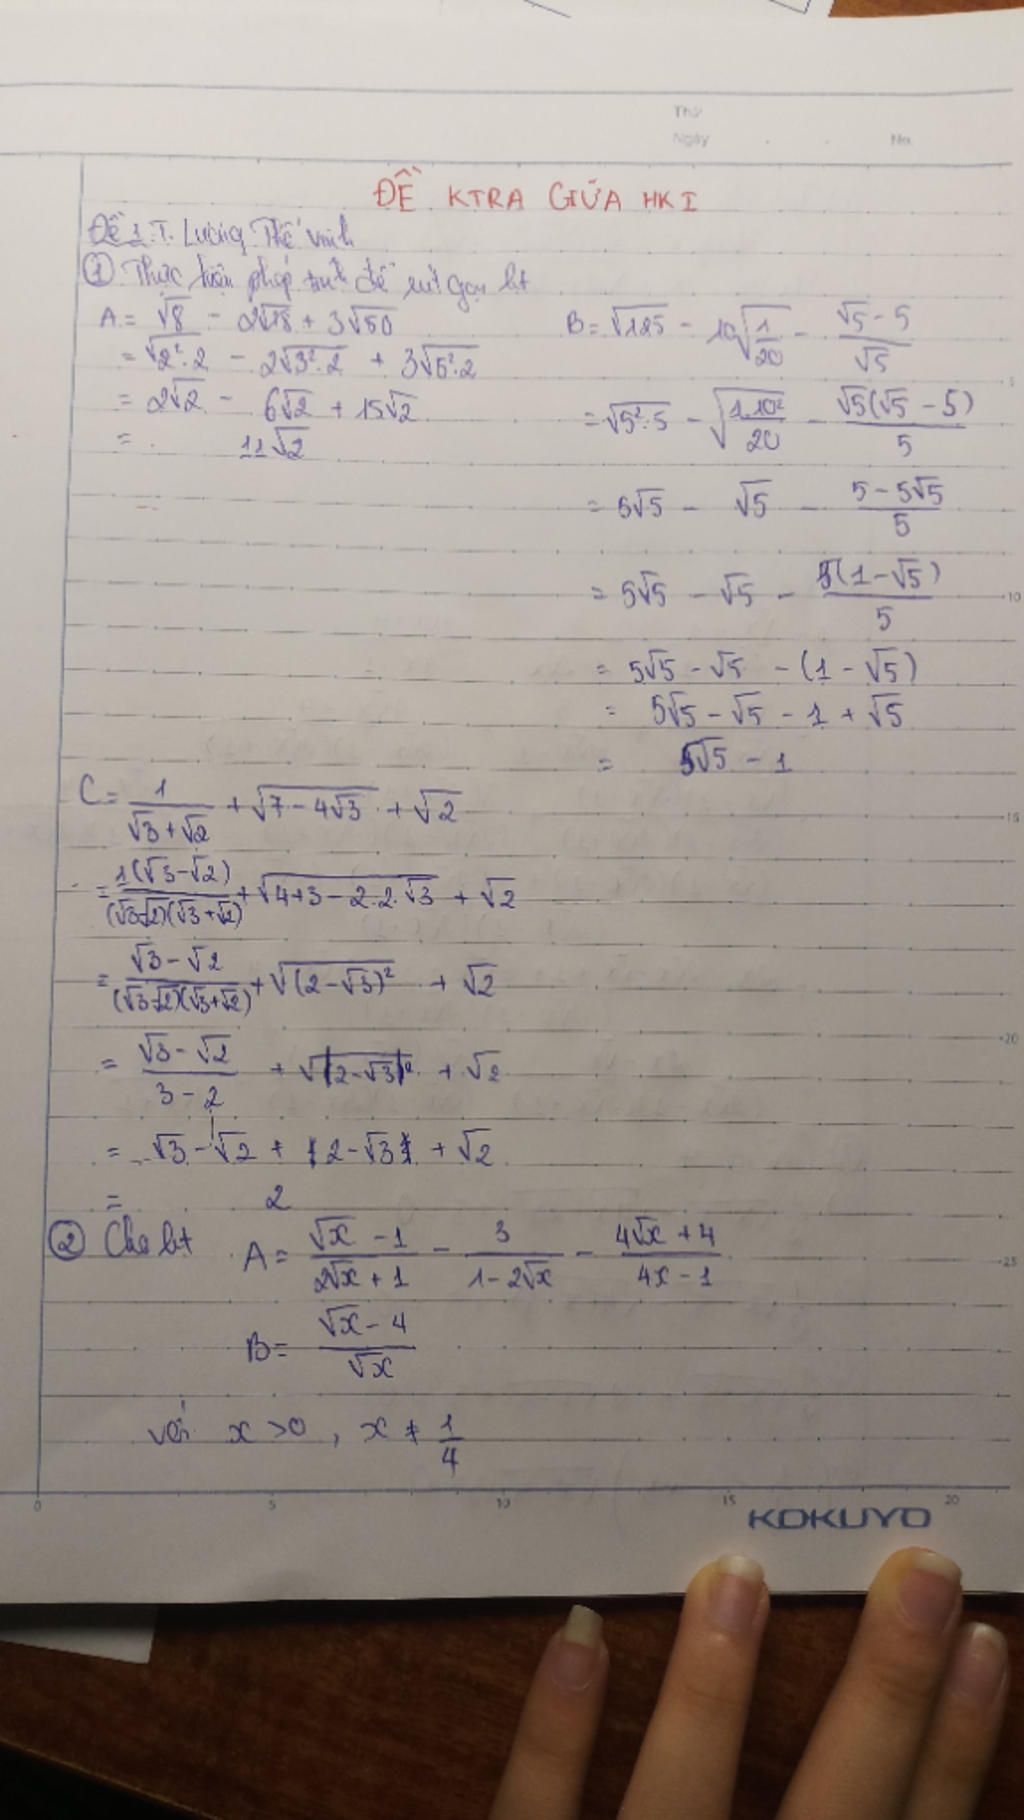 Thứ
Ngày . . No.
ĐỀ KTRA GIỮA HKI
Đề 1 T. Lương Thế Vinh
① Thực hiện phép tính để rút gọn bt
A = √8 - 2√18 + 3√50
= √2².2 - 2√3².2 + 3√5².2
= 2√2 - 6√2 + 15√2
= 11√2
B = √125 - 10√(1/20) - (√5 - 5)/√5
= √5².5 - √(1.10²/20) - √5(√5 - 5)/5
= 5√5 - √5 - (5 - 5√5)/5
= 5√5 - √5 - 5(1 - √5)/5
= 5√5 - √5 - (1 - √5)
= 5√5 - √5 - 1 + √5
= 5√5 - 1
C = 1/(√3 + √2) + √(7 - 4√3) + √2
= 1(√3 - √2)/(√3 - √2)(√3 + √2) + √(4 + 3 - 2.2.√3) + √2
= (√3 - √2)/(√3 - √2)(√3 + √2) + √(2 - √3)² + √2
= (√3 - √2)/(3 - 2) + √|2 - √3|² + √2
= √3 - √2 + 2 - √3 + √2
= 2
② Cho bt A = (√x - 1)/(2√x + 1) - 3/(1 - 2√x) - (4√x + 4)/(4x - 1)
B = (√x - 4)/√x
với x > 0 , x ≠ 1/4
5
10
15
20
25
0 5 10 15 20
KOKUYO